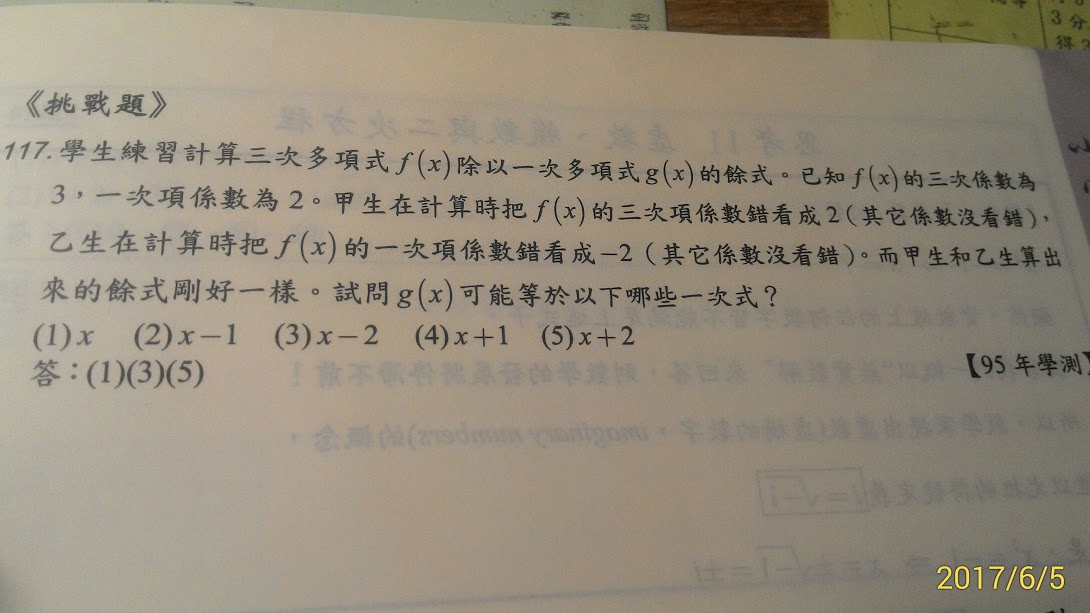 3分
得
《挑戰題》
117.學生練習計算三次多項式f(x)除以一次多項式g(x)的餘式。已知f(x)的三次係數為
3,一次項係數為2。甲生在計算時把f(x)的三次項係數錯看成2(其它係數沒看錯),
乙生在計算時把f(x)的一次項係數錯看成-2(其它係數沒看錯)。而甲生和乙生算出
來的餘式剛好一樣。試問g(x)可能等於以下哪些一次式?
(1)x (2)x-1 (3)x-2 (4)x+1 (5)x+2
答:(1)(3)(5) 【95年學測】
2017/6/5